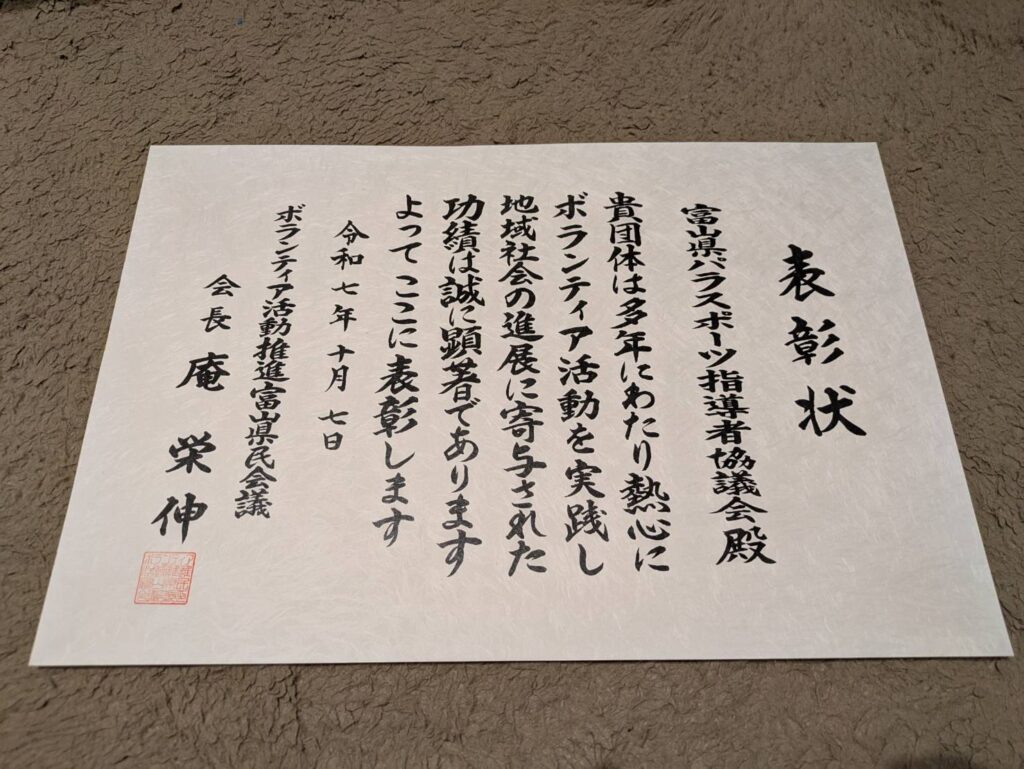 表彰状
富山県パラスポーツ指導者協議会殿
貴団体は多年にわたり熱心に
ボランティア活動を実践し
地域社会の進展に寄与された
功績は誠に顕著であります
よってここに表彰します
令和七年十月七日
ボランティア活動推進富山県民会議
会長 庵 栄伸